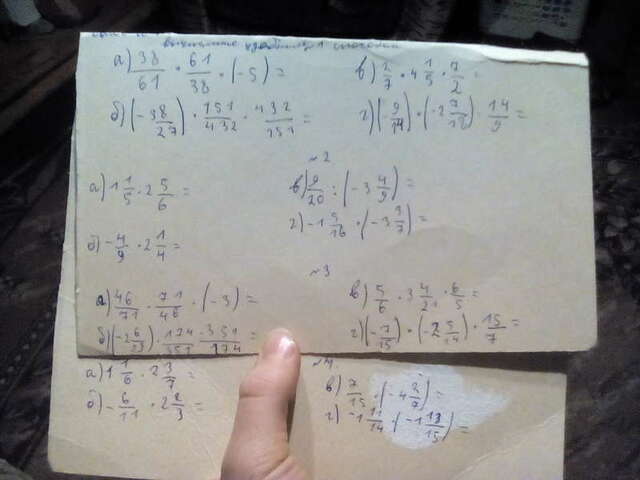 вычислите удобным способом
а) 38/61 · 61/38 · (-5) = в) 2/7 · 4 1/5 · 7/2 =
б) (-38/27) · 151/432 · 432/151 = г) (-9/14) · (-2 7/18) · 14/9 =
№2
а) 1 1/5 · 2 5/6 = в) 9/20 : (-3 4/9) =
б) -4/9 · 2 1/4 = г) -1 5/16 · (-3 3/7) =
№3
а) 46/71 · 71/46 · (-3) = в) 5/6 · 3 4/21 · 6/5 =
б) (-2 6/23) · 174/351 · 351/174 = г) (-7/15) · (-2 5/14) · 15/7 =
№4
а) 1 1/6 · 2 3/7 = в) 7/15 · (-4 2/7) =
б) -6/11 · 2 2/3 = г) -1 11/14 · (-1 13/15) =